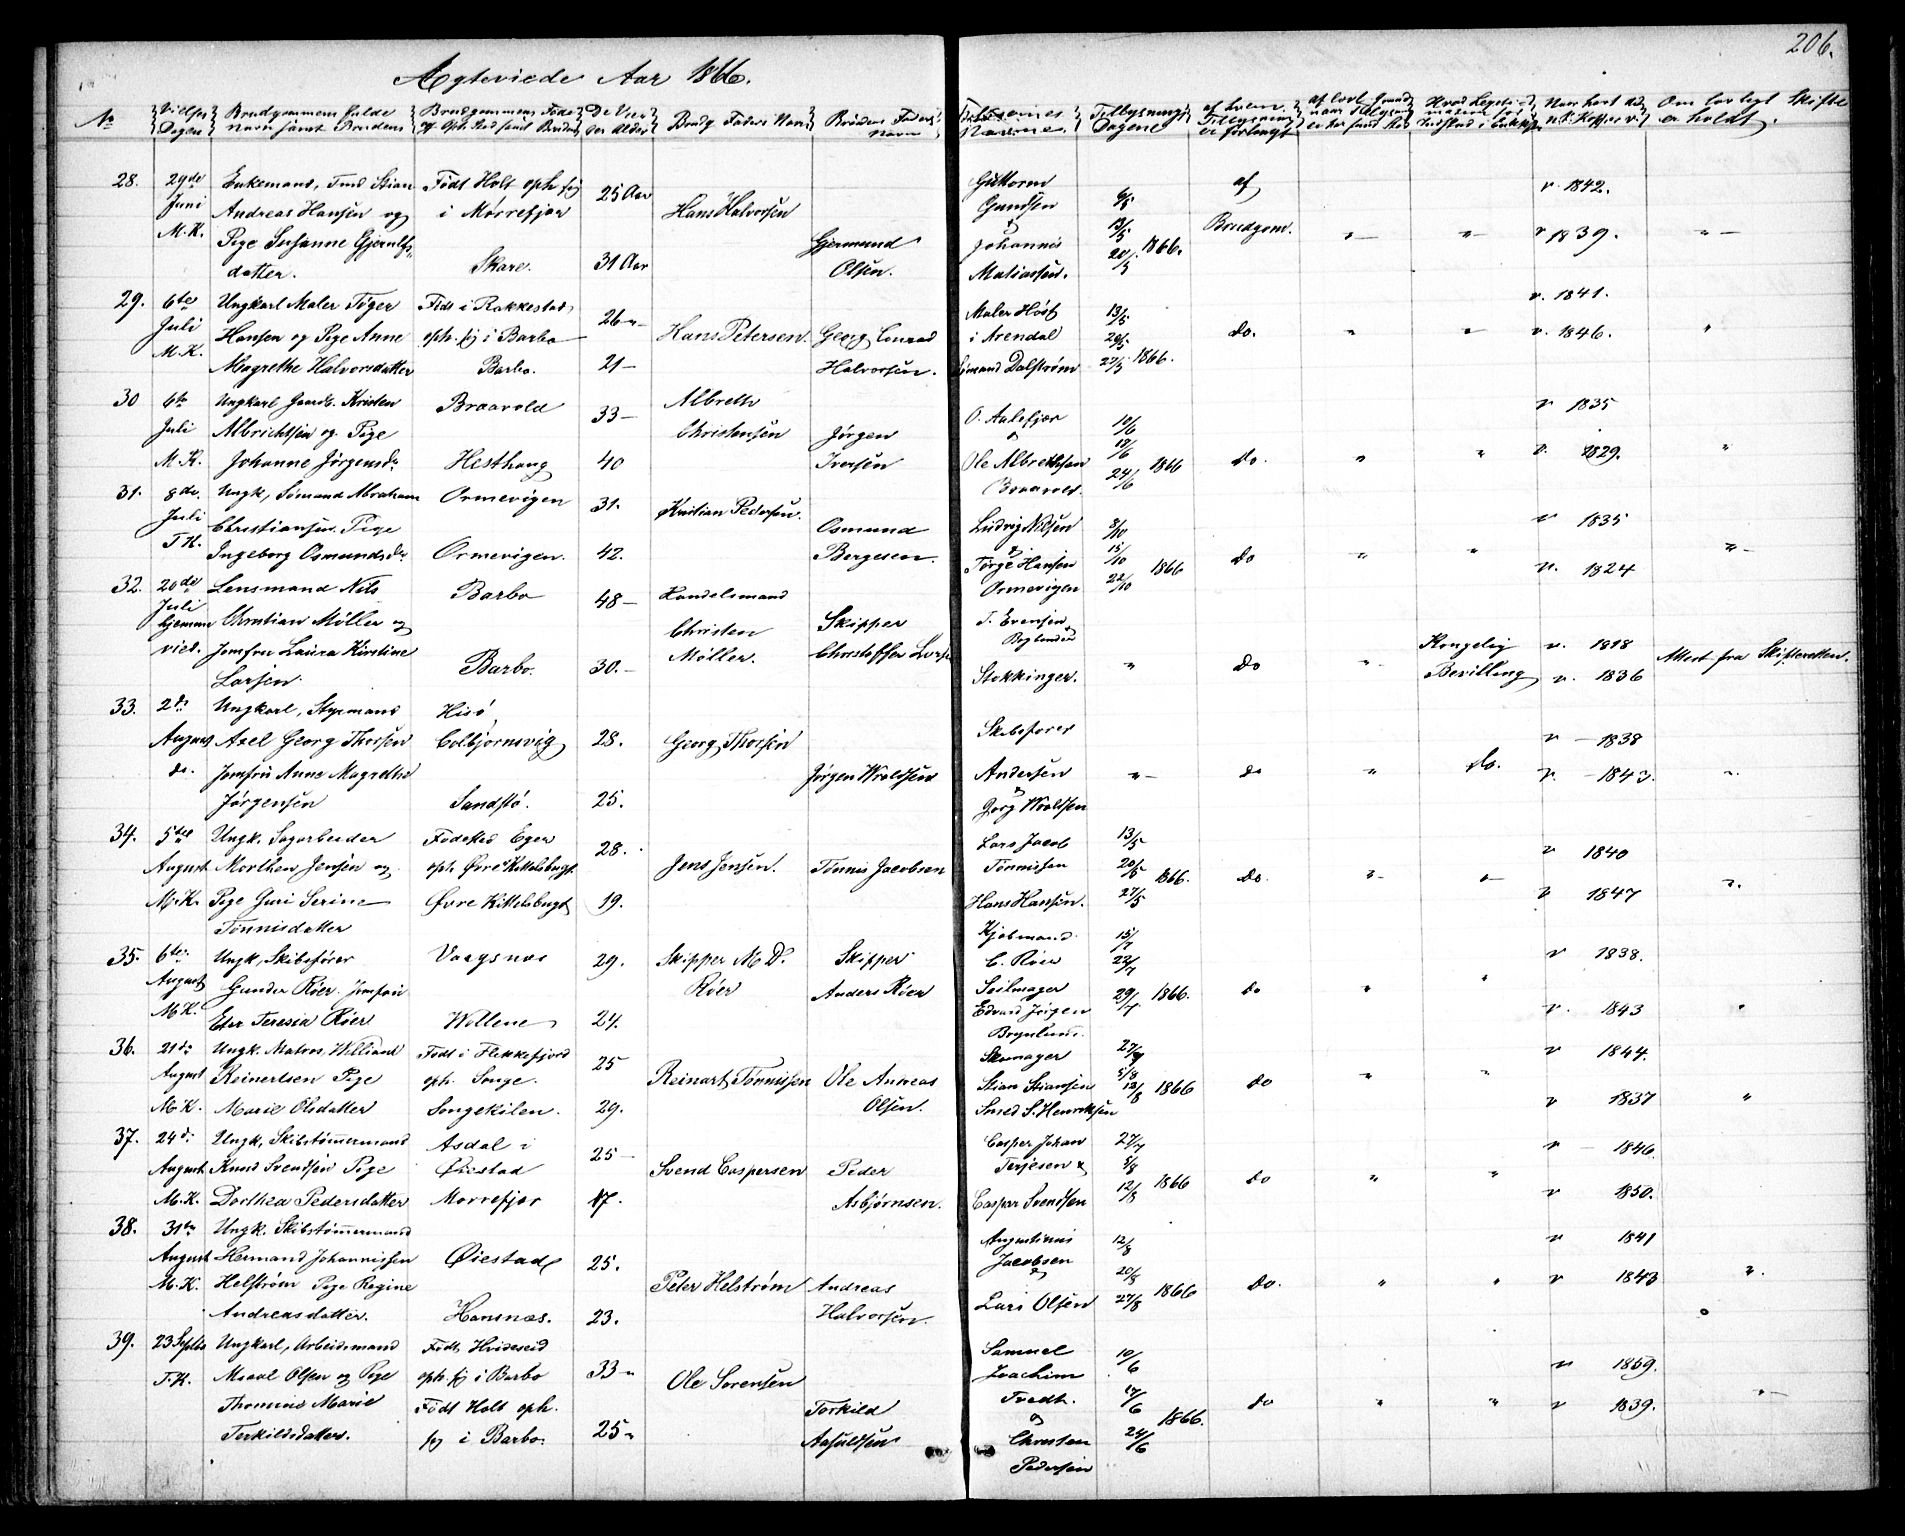 206.
Ægteviede Aar 1866.
No
Vielses Dagen
Brudgommens fulde Navn samt Brudens
Brudgommens Føde og Oph. Sted samt Brudens
De Viedes Alder
Brudg. Faders Navn
Brudens Faders Navn
Forlovernes Navne
Tillysnings Dagene
af hvem Tillysning er forlangt
Om lovligt Skifte er holdt
28. 29de Juni M.K.
Enkemand, Tmd Stian Andreas Hansen og Pige Susanne Gjerulfsdatter.
Født Holt oph. sig i Mørrefjær
Skare.
25 Aar
31 Aar
Hans Halvorsen
Gjermund Olsen.
Guttorm Gundsen & Johannis Matiassen.
6/5 13/5 20/5 1866.
af Brudgom.
v. 1842.
v 1839.
29. 6te Juli M.K.
Ungkarl Maler Tøger Hansen og Pige Anne Magrethe Halvorsdatter
Født i Rakkestad, oph. sig i Barbo
Barbo.
26
21
Hans Petersen.
Georg Conrad Halvorsen.
Maler Høst i Arendal
Sømand Dalstrøm
13/5 20/5 27/5 1866.
do.
v. 1841.
v. 1846.
30 6te Juli M.K.
Ungkarl Gaardb. Kristen Albrichtsen og Pige Johanne Jørgensdr
Braavold
Hesthaug
33
40
Albreth Christensen
Jørgen Iversen
O. Aalefjær & Ole Albrethsen Braavold.
10/6 17/6 24/6 1866
do.
v 1835
v. 1829.
31. 8de Juli T.K.
Ungk, Sømand Abraham Christiansen. Pige Ingeborg Osmundsdr
Ormevigen
Ormevigen.
31.
42.
Kristian Pedersen.
Osmund Bergesen.
Ludvig Nilsen & Tørge Hansen Ormevigen
8/10 15/10 22/10 1866
do
v 1835
v. 1824
32. 20de Juli hjemmevied.
Lensmand Nils Christian Møller og Jomfru Laura Kirstine Larsen.
Barbo
Barbo.
48
30.
Handelsmand Christen Møller.
Skipper Christoffer Larsen
T. Evensen Boglander & Stokkinger.
do
Kongelig Bevilling
v. 1818
v. 1836
Attest fra Skifteretten.
33. 2de August do.
Ungkarl, Styrmand Axel Georg Thorsen Jomfru Anne Magrethe Jørgensen
Hisø, Colbjørnsvig
Sandstø.
28.
25.
Georg Thorsen
Jørgen Wroldsen
Skibsfører Andersen & Georg Wroldsen
do
do.
v 1838
v. 1843.
34. 5te August M.K.
Ungk. Sagarbeider Morthen Jensen og Pige Guri Serine Tønnisdatter
Fødested Eger oph. Øvre Kittelsbugt.
Øvre Kittelsbugt
28.
19.
Jens Jensen.
Tønnis Jacobsen
Lars Jacob Tønnissen
Hans Hansen.
13/5 20/5 27/5 1866.
do.
v 1840
v 1847
35. 6te August M.K.
Ungk, Skibsfører Gunder Røer. Jomfru Eter Teresia Røer
Vaagsnæs
Wollene
29.
24.
Skipper M D. Røer
Skipper Anders Røer
Kjøbmand C. Røer
Seilmager Edvard Jørgen Brynlund.
15/7 22/7 29/7 1866.
do
v 1838.
v. 1843
36. 21de August M.K.
Ungk. Matros Williand Reinertsen Pige Marie Olsdatter
Født i Flekkefjord oph. Songe.
Songekilen.
25
29.
Reinart Tønnissen
Ole Andreas Olsen.
Skomager Stian Stiansen
Smed S. Henriksen
27/7 5/8 12/8 1866
do
v 1844.
v 1837
37. 24de August M.K.
Ungk, Skibstømmermand Knud Svendsen Pige Dorthea Pedersdatter
Asdal i Øiestad
Mørrefjær
25
17.
Svend Caspersen
Peder Asbjørnsen.
Casper Johan Terjesen & Caspar Svendsen
27/7 5/8 12/8 1866
do
v 1846.
v 1850.
38. 31te August M.K.
Ungk. Skibstømmermand Hermand Johannissen Helstrøm Pige Regine Andreasdatter.
Øiestad
Hansnæs.
25.
23.
Peter Helstrøm
Andreas Halvorsen.
Augustinus Jacobsen & Lars Olsen
12/8 20/8 27/8 1866
do.
v 1841
v 1843
39. 23 Septbr T.K.
Ungkarl, Arbeidsmand Misael Olsen og Pige Thomine Marie Terkildsdatter.
Født Hvideseid oph. sig i Barbo
Født Holt oph. sig i Barbo.
33
25
Ole Sørensen
Torkild Aasuldsen
Samuel Joachim Tvedt. & Christen Pedersen
10/6 17/6 24/6 1866.
do
v 1859.
v 1839.